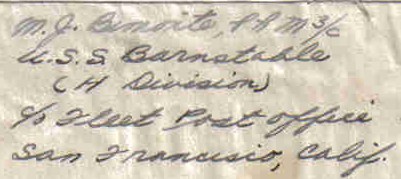 M. J. Benoite, Ph M 3/c
U.S.S. Barnstable
(H Division)
c/o Fleet Post office
San Francisco, Calif.